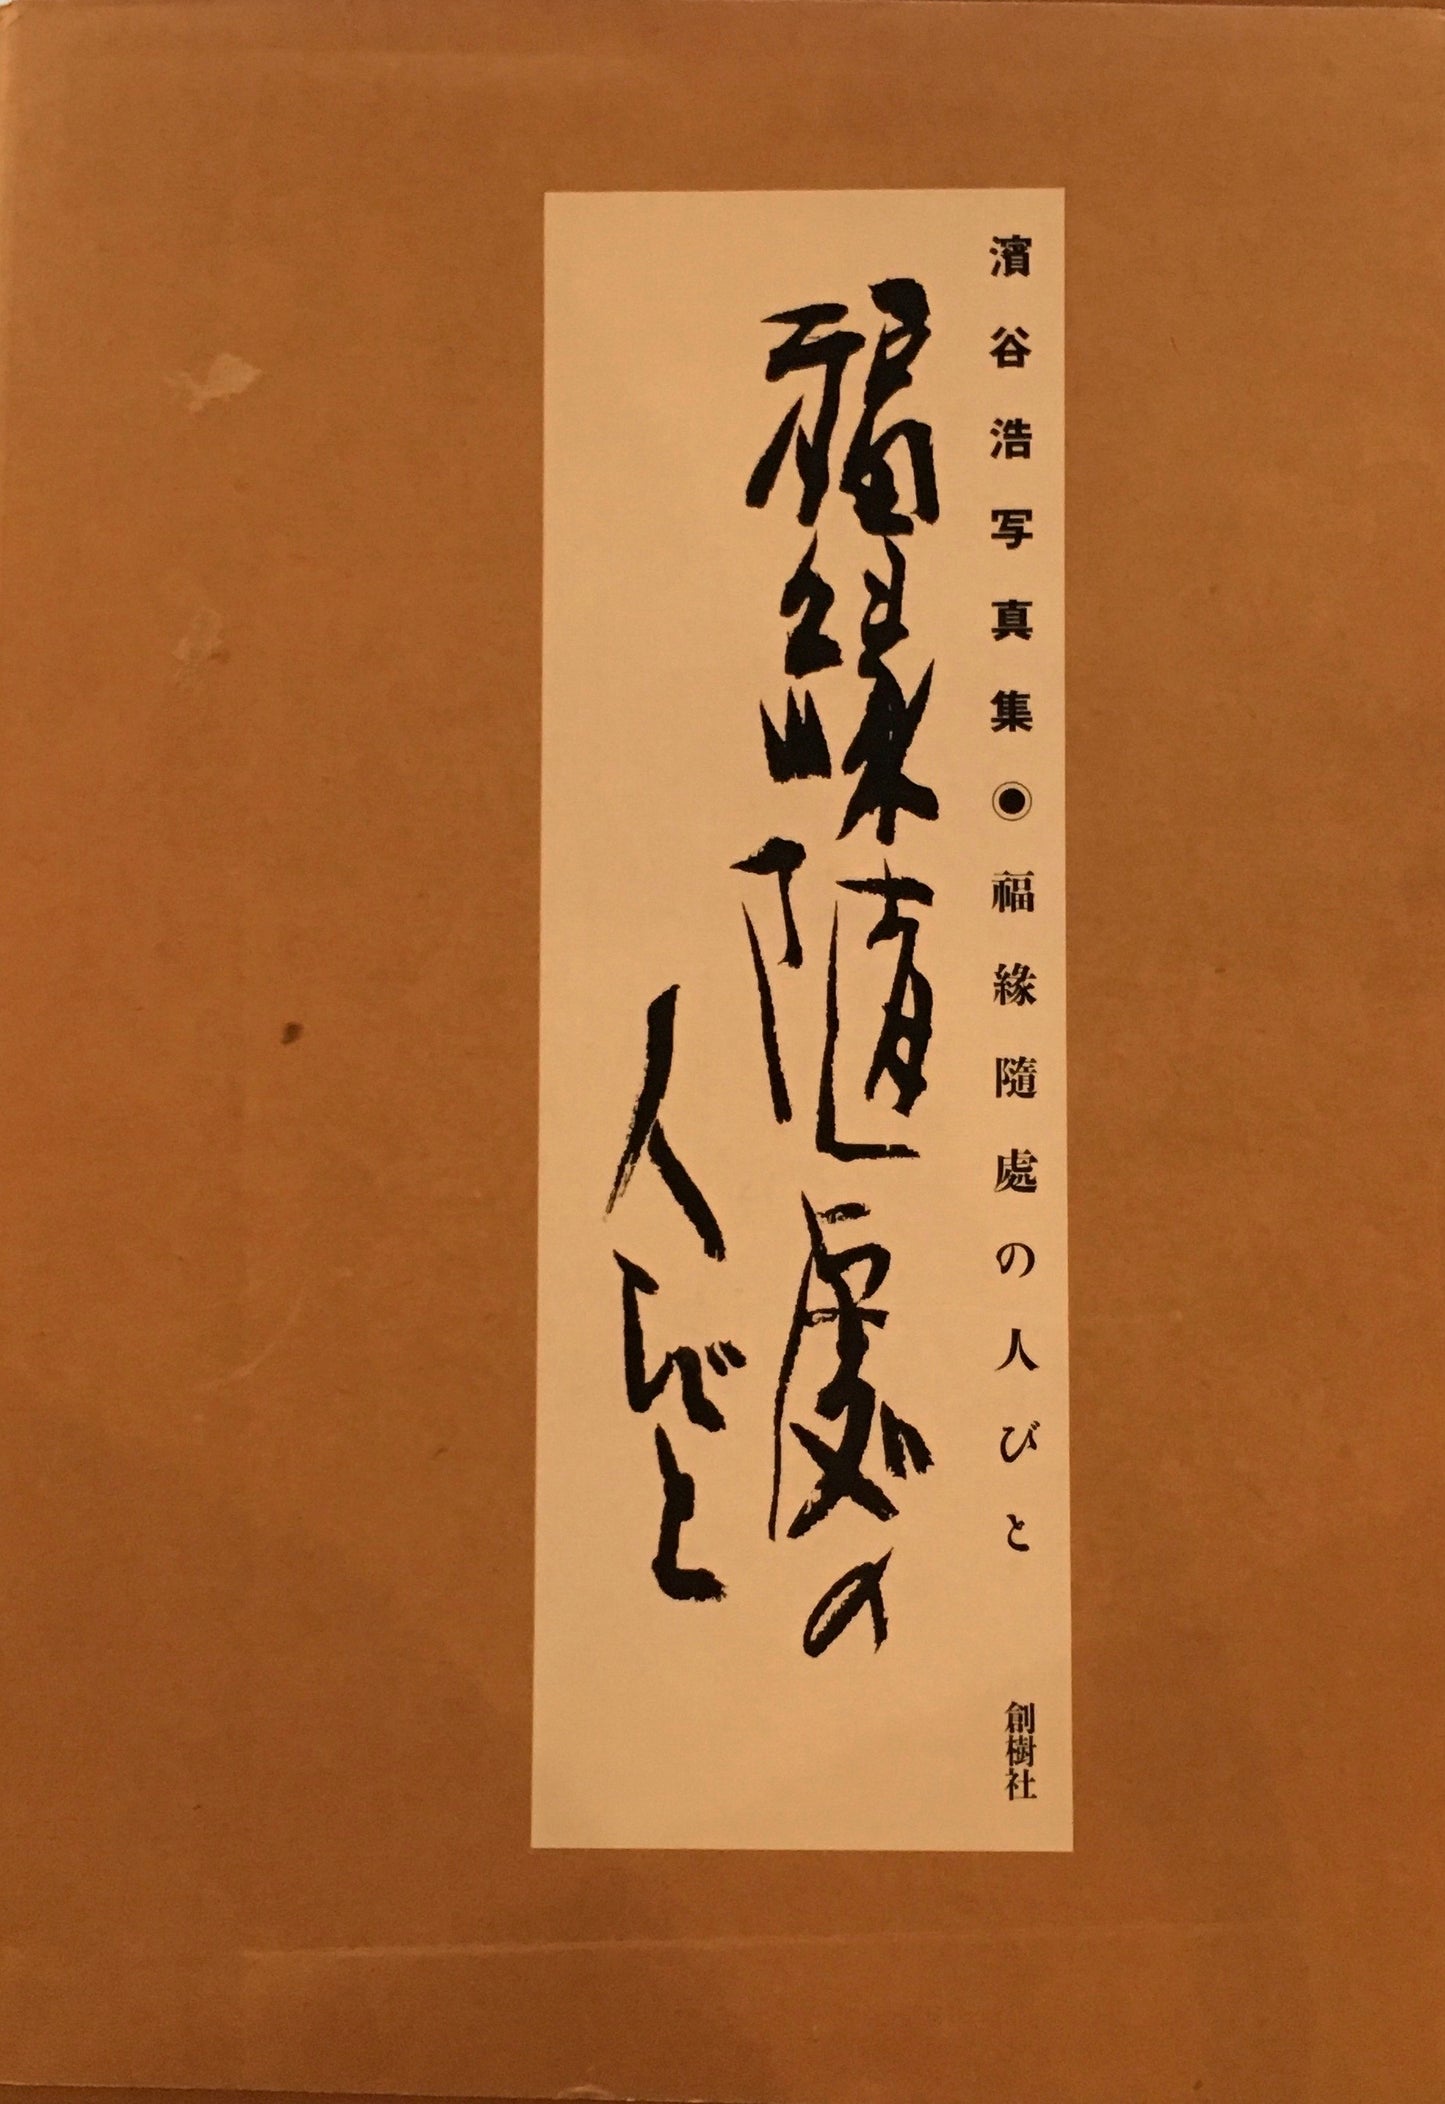 濱谷浩写真集◉福緣隨處の人びと
創樹社
福緣隨處の
人びと